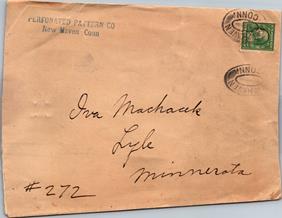 PERFORATED PATTERN CO
New Haven Conn
CONN.
Iva Machacek
Lyle
Minnerota
#272